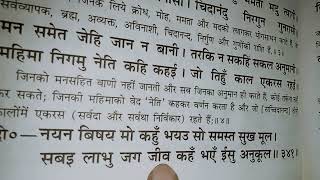 जिनके लिये क्रोध, मोह, ममता और मदको त्यागकर
सर्वव्यापक, ब्रह्म, अव्यक्त, अविनाशी, चिदानन्द, निर्गुण और गुणोंकी राशि हैं;॥३॥
मन समेत जेहि जान न बानी। तरकि न सकहिं सकल अनुमानी॥
महिमा निगमु नेति कहि कहई। जो तिहुँ काल एकरस रहई॥
जिनको मनसहित वाणी नहीं जानती और सब जिनका अनुमान ही करते हैं, कोई
कर सकते; जिनकी महिमाको वेद 'नेति' कहकर वर्णन करता है और जो [सच्चिदानन्द]
कालोंमें एकरस (सर्वदा और सर्वथा निर्विकार) रहते हैं;॥४॥
दो०—नयन बिषय मो कहुँ भयउ सो समस्त सुख मूल।
सबइ लाभु जग जीव कहँ भएँ ईसु अनुकूल॥३४१॥